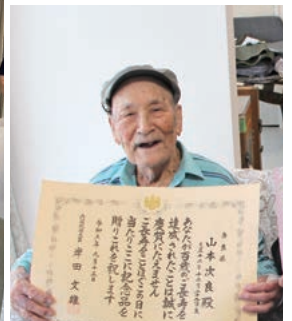 山本次良殿
あなたが百歳のご長寿を
達成されたことは誠に
慶賀にたえません
ご長寿をことほぐこの日に
当たりここに記念品を
贈りこれを祝します
令和六年九月十五日
内閣総理大臣 岸田文雄